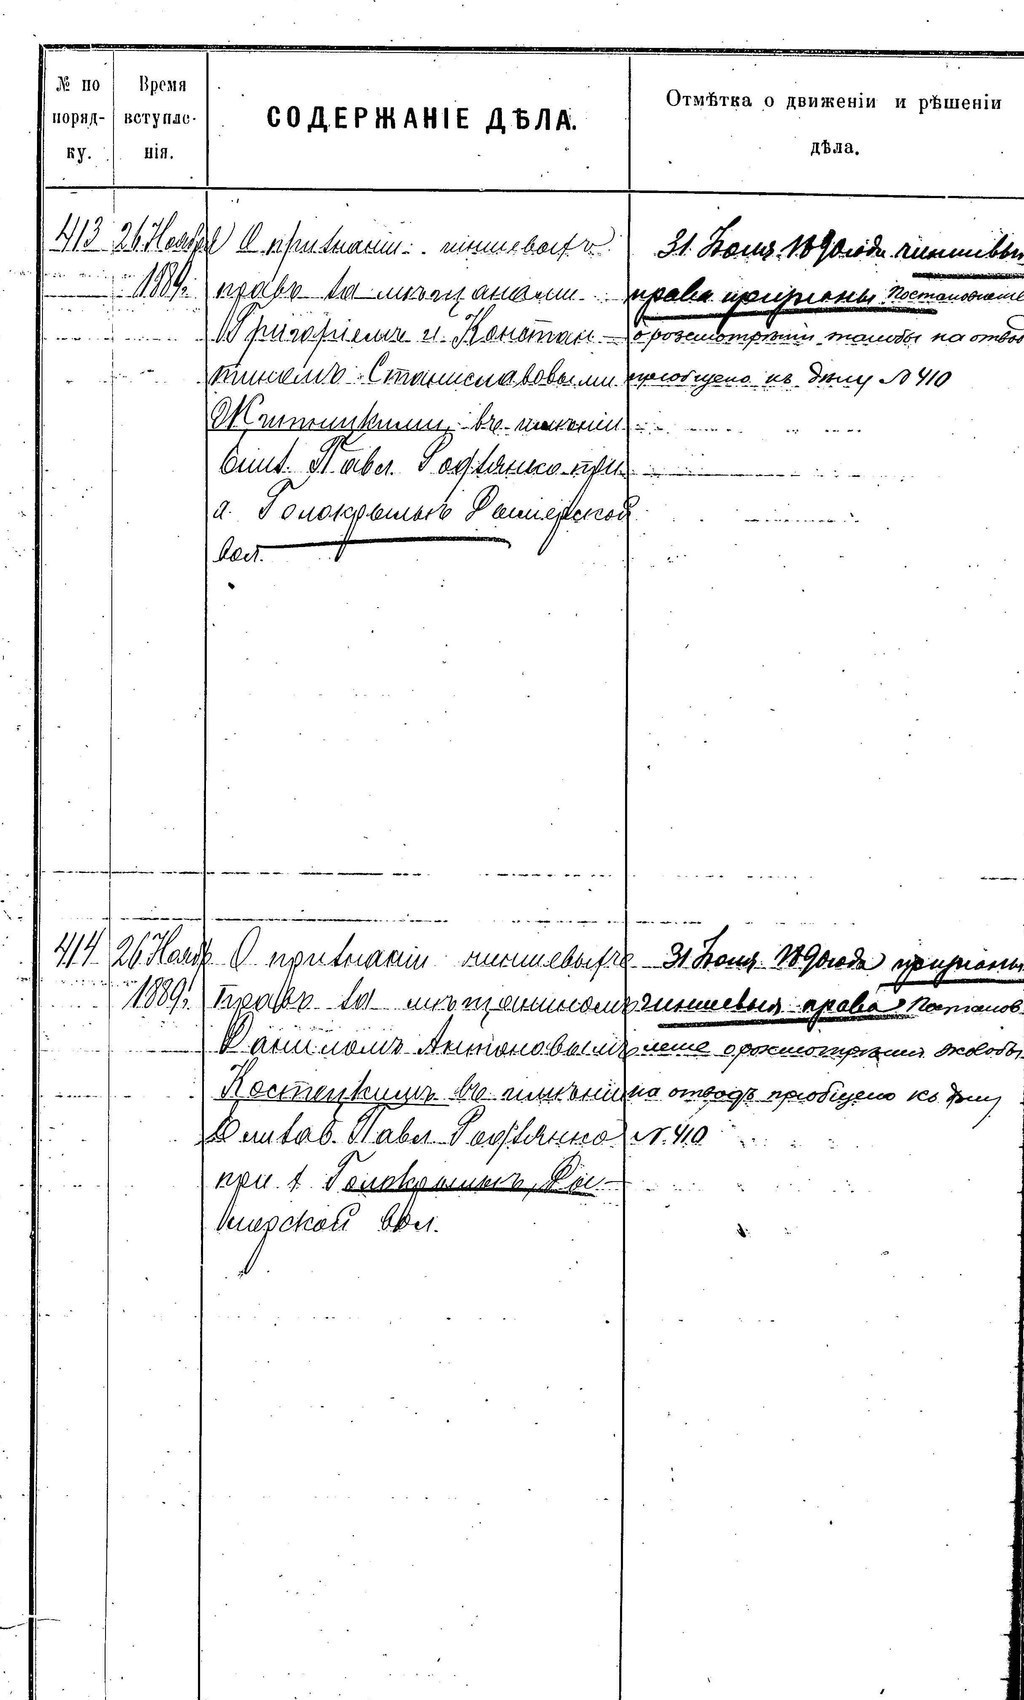 № по поряд- ку.
Время вступле- нія.
СОДЕРЖАНІЕ ДѢЛА.
Отмѣтка о движеніи и рѣшеніи
дѣла.
413
26 Ноября
1889г.
О признаніи чиншевыхъ
правъ за мѣщанами
Григоріемъ и Констан-
тиномъ Станиславовыми
Житницкими, въ имѣніи
Павл. при
Голокрылыхъ Дымерской
вол.
31 Іюля 1890 года чиншевыя
права признаны. Постановление
о розсмотрѣніи жалобы на отвод
пріобщено къ дѣлу № 410
414
26 Нояб
1889г.
О признаніи чиншевыхъ
Правъ за мѣщаниномъ
Даниломъ Антоновымъ
Костецкимъ въ имѣніи
Павл.
при Голокрылыхъ, Ды-
мерской вол.
31 Іюля 1890 года признаны
чиншевыя права Постанов-
ление о розсмотрѣнии жалобы
на отводъ пріобщено къ дѣлу
№ 410